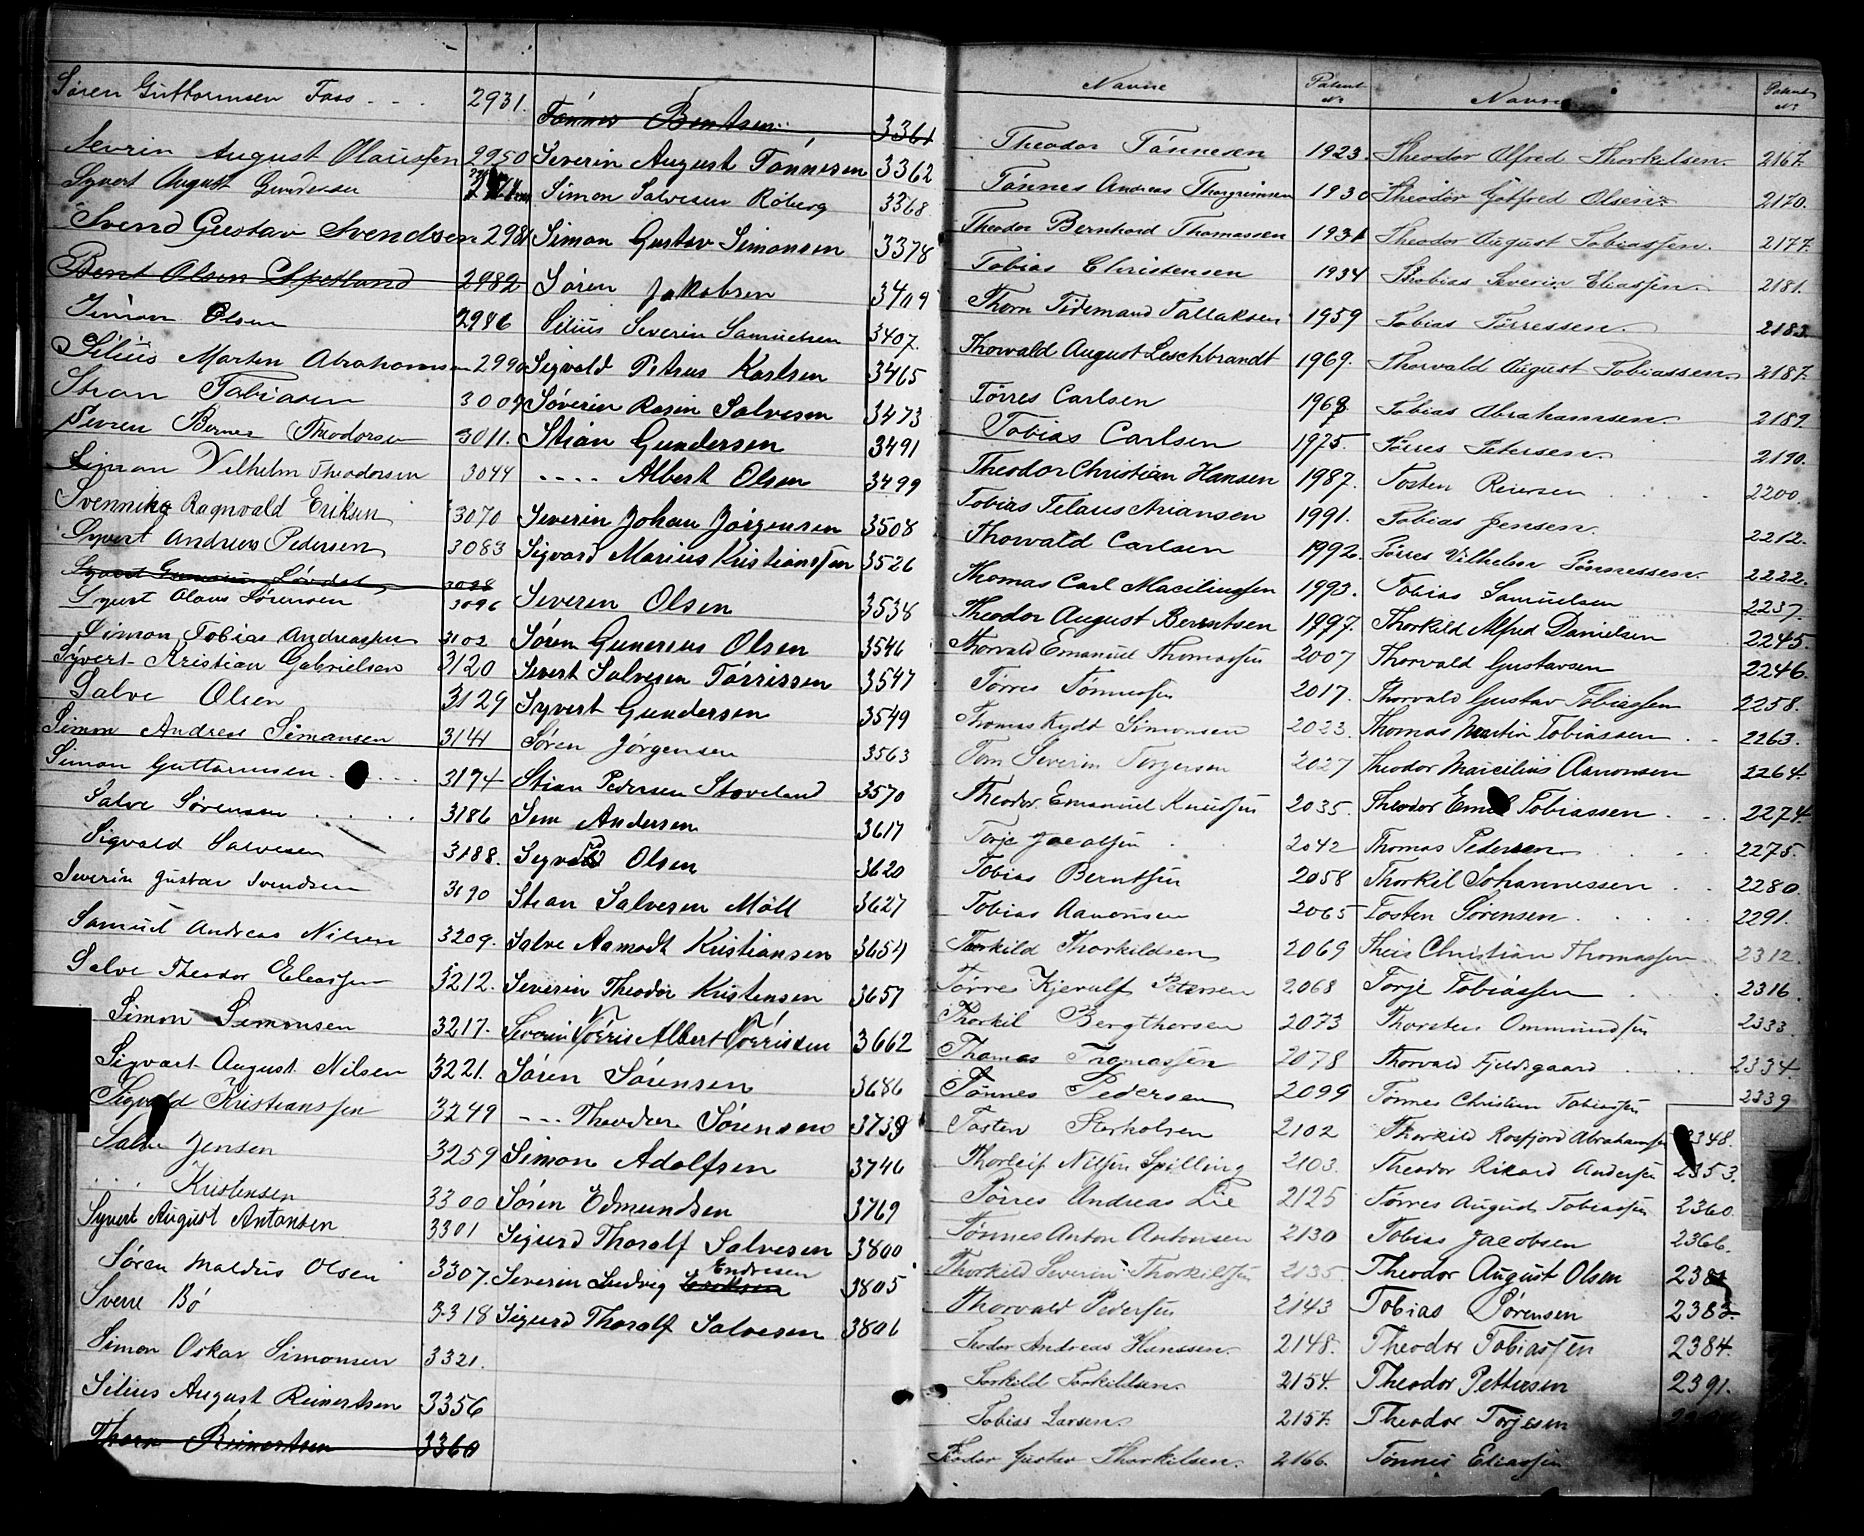 Søren Guttormsen Foss - - - 2931.
Sevrin August Olaussen 2950
Syvert August Gundersen
Svend Gustav Svendsen 2981
Bent Olsen Spetland 2982
Simon Olsen 2986
Silius Martin Abrahamsen 2990
Stian Tobiasen 3009
Sevren Berner Theodorsen 3011.
Simon Vilhelm Theodorsen 3044
Svennike Ragnvald Eriksen 3070
Syvert Andreas Pedersen 3083
Syvert
Syvert Olaus Sørensen 3096
Simon Tobias Andreassen 3102
Syvert Kristian Gabrielsen 3120
Salve Olsen 3129
Simon Andreas Simonsen 3141
Simon Guttormsen - - - 3174
Salve Sørensen . . . . 3186
Sigvald Salvesen 3188.
Severin Gustav Svendsen 3190
Samuel Andreas Nilsen 3209.
Salve Theodor Eleassen 3212.
Simon Simonsen 3217.
Sigvart August Nilsen 3221.
Sigvald Kristianssen 3249
Salve Jensen 3259
. . . . Kristensen 3300
Syvert August Antonsen 3301
Søren Maldus Olsen 3307.
Sverre Bó 3318
Simon Oskar Simonsen 3321.
Silius August Reinertsen 3356
Thorn Reinertsen 3360
Tønnes Bentsen 3361
Severin August Tønnesen 3362
Simon Salvesen Róberg 3368
Simon Gustav Simonsen 3378
Søren Jakobsen 3409
Silius Severin Samuelsen 3407.
Sigvald Petrus Karlsen 3465
Søverin Rosin Salvesen 3473
Stian Gundersen 3491
- - - - Albert Olsen 3499
Severin Johan Jørgensen 3508
Sigvard Marius Kristianssen 3526
Severin Olsen 3538
Søren Gunerius Olsen 3546
Sivert Salvesen Tørrissen 3547
Syvert Gundersen 3549
Søren Jørgensen 3563
Stian Pedersen Stoveland 3570
Sem Andersen 3617
Sigvald Olsen 3620
Stian Salvesen Möll 3627
Salve Aamodt Kristiansen 3654
Severin Theodor Kristensen 3657
Severin Tørris Albert Tørrisden 3662
Søren Sørensen 3686
- - - Theodor Sørensen 3739
Simon Adolfsen 3746
Søren Edmundsen 3769
Sigurd Thoralf Salvesen 3800
Endresen
Severin Ludvig Eriksen 3805
Sigurd Thoralf Salvesen 3806
Navne Patent Nr Navne Patent Nr
Theodor Tønnesen 1923.
Tønnes Andreas Thorgrimsen 1930
Theodor Bernhard Thomassen 1931
Tobias Christensen 1934
Thorn Tidemand Tallaksen 1959
Thorvald August Leschbrandt 1969.
Tørres Carlsen 1968
Tobias Carlsen 1975.
Theodor Christian Hansen 1987.
Tobias Telaus Ariansen 1991.
Thorvald Carlsen 1992.
Thomas Carl Masiliussen 1993.
Theodor August Berentsen 1997.
Thorvald Emanuel Thomassen 2007
Tørres Tønnessen 2017.
Thomas Kydt Simonsen 2023.
Tom Severin Torgersen 2027
Theodor Emanuel Knudsen 2035.
Torje Jacobsen 2042
Tobias Berntsen 2058
Tobias Aanonsen 2065
Thorkild Thorkildsen 2069
Tørre Kjerulf Petersen 2068
Thorkil Bergthorsen 2073
Thomas Thomassen 2078
Tønnes Pedersen 2099
Tosten Sterkolsen 2102
Thorleif Nilsen Spilling 2103.
Tørres Andreas Lie 2125
Tønnes Anton Antonsen 2130
Thorkild Severin Thorkildsen 2135
Thorvald Pedersen 2143
Teodor Andreas Hanssen. 2148.
Torkild Torkildsen 2154.
Tobias Larsen 2157.
Teodor Gustav Thorkilsen. 2166.
Theodor Alfred Thorkilsen. 2167.
Theodor Gotfred Olsen. 2170.
Theodor August Tobiassen. 2177.
Thobias Severin Eliassen. 2181.
Tobias Tørressen. 2183
Thorvald August Tobiassen. 2187.
Tobias Abrahamsen. 2189
Tørres Petersen. 2190.
Tosten Reiersen 2200.
Tobias Jensen. 2212.
Tørres Vilhelm Tønnessen. 2222.
Tobias Samuelsen 2237.
Thorkild Alfred Danielsen 2245.
Thorvald Gustavsen 2246.
Thorvald Gustav Tobiassen 2258.
Thomas Martin Tobiassen . . 2263.
Theodor Marcilius Aanonsen 2264.
Theodor Emil Tobiassen . . 2274.
Thomas Pedersen 2275.
Thorkil Johannessen . . 2280.
Tosten Sørensen . . . 2291.
Theis Christian Thomassen 2312.
Torje Tobiassen . . 2316.
Thorsten Ommundsen 2333.
Thorvald Fjeldsgaard . . . 2334.
Tønnes Christian Tobiassen 2339
Thorkild Rosfjord Abrahamsen 2348.
Theodor Rikard Andersen 2353.
Tørres August Tobiassen 2360.
Tobias Jacobsen 2366.
Theodor August Olsen 2381
Tobias Sørensen 2383.
Theodor Tobiassen 2384.
Theodor Pettersen 2391.
Theodor Torjesen
Tønnes Eliassen